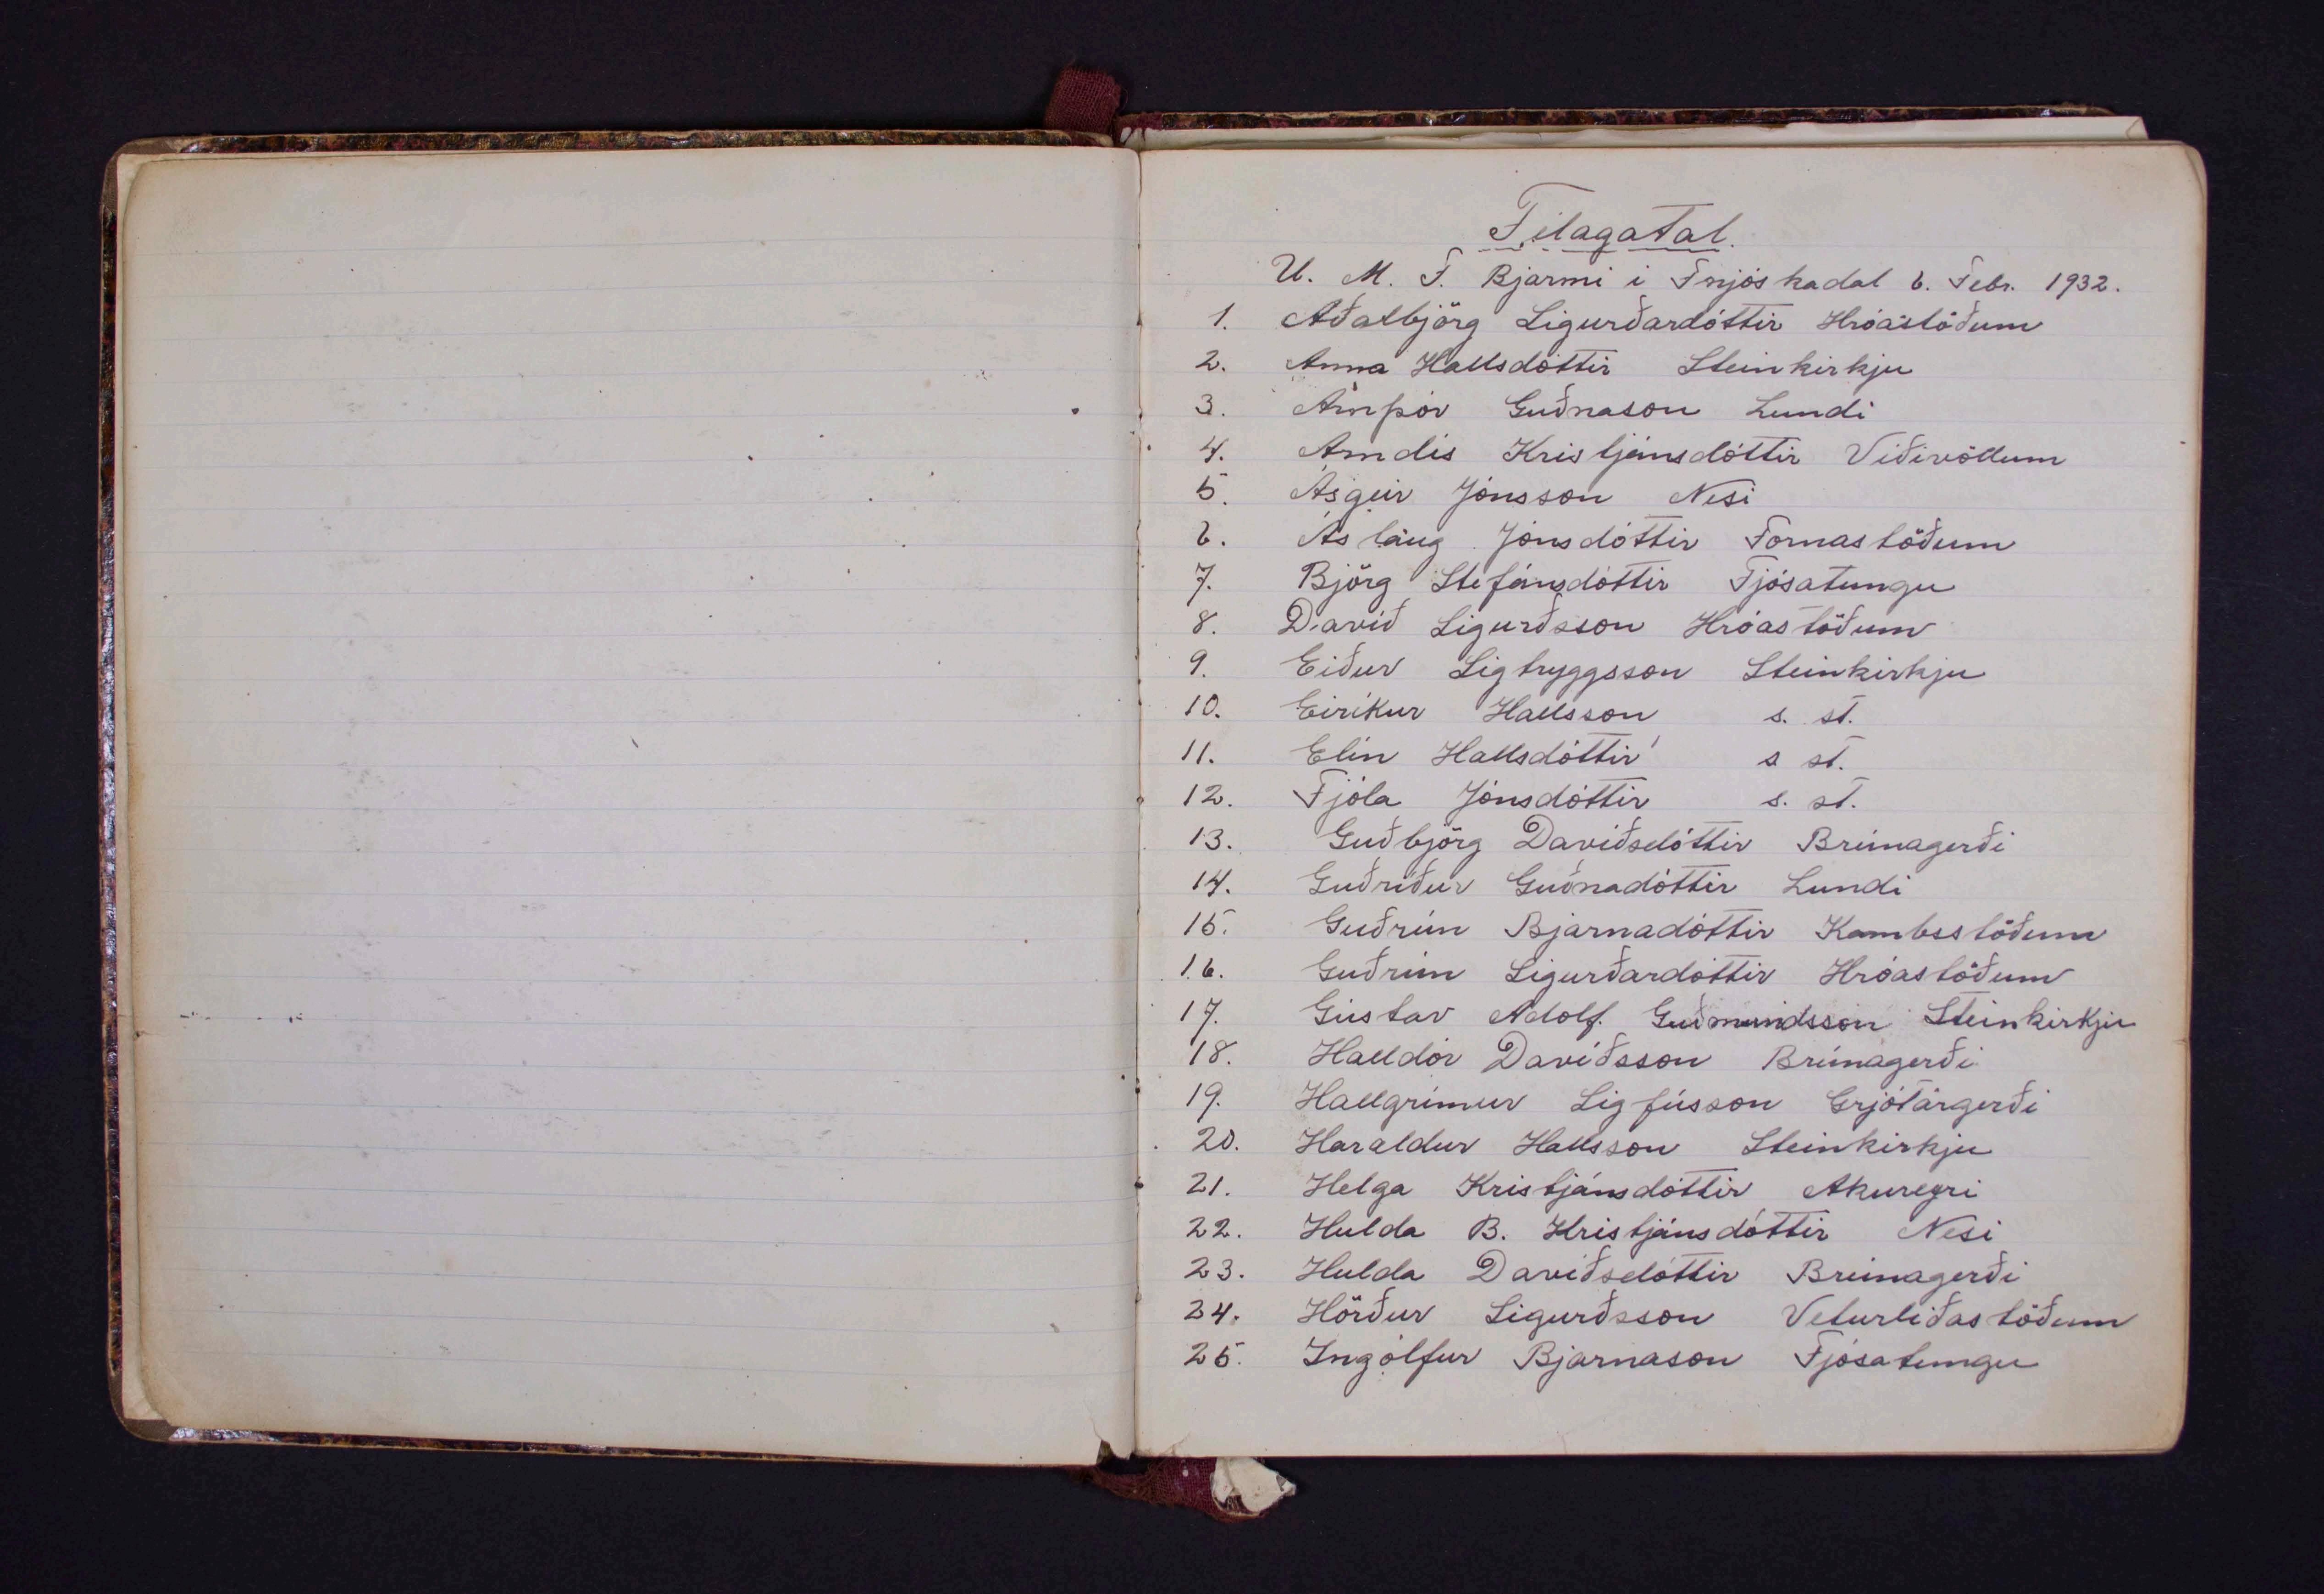 Félagatal.
U. M. F. Bjarmi í Fnjóskadal 6. Febr. 1932.
1. Aðalbjörg Sigurðardóttir Hróastöðum
2. Anna Hallsdóttir Steinkirkju
3. Arnþór Guðnason Lundi
4. Arndís Kristjánsdóttir Víðivöllum
5. Ásgeir Jónsson Nesi
6. Áslaug Jónsdóttir Fornastöðum
7. Björg Stefánsdóttir Fjósatungu
8. Davíð Sigurðsson Hróastöðum
9. Eiður Sigtryggsson Steinkirkju
10. Eiríkur Hallsson s. st.
11. Elín Hallsdóttir s st.
12. Fjóla Jónsdóttir s. st.
13. Guðbjörg Davíðsdóttir Brúnagerði
14. Guðríður Guðnadóttir Lundi
15. Guðrún Bjarnadóttir Kambsstöðum
16. Guðrún Sigurðardóttir Hróastöðum
17. Gústav Adolf. Guðmundsson Steinkirkju
18. Halldór Davíðsson Brúnagerði
19. Hallgrímur Sigfússon Grjótárgerði
20. Haraldur Hallsson Steinkirkju
21. Helga Kristjánsdóttir Akureyri
22. Hulda B. Kristjánsdóttir Nesi
23. Hulda Davíðsdóttir Brúnagerði
24. Hörður Sigurðsson Veturliðastöðum
25. Ingólfur Bjarnason Fjósatungu